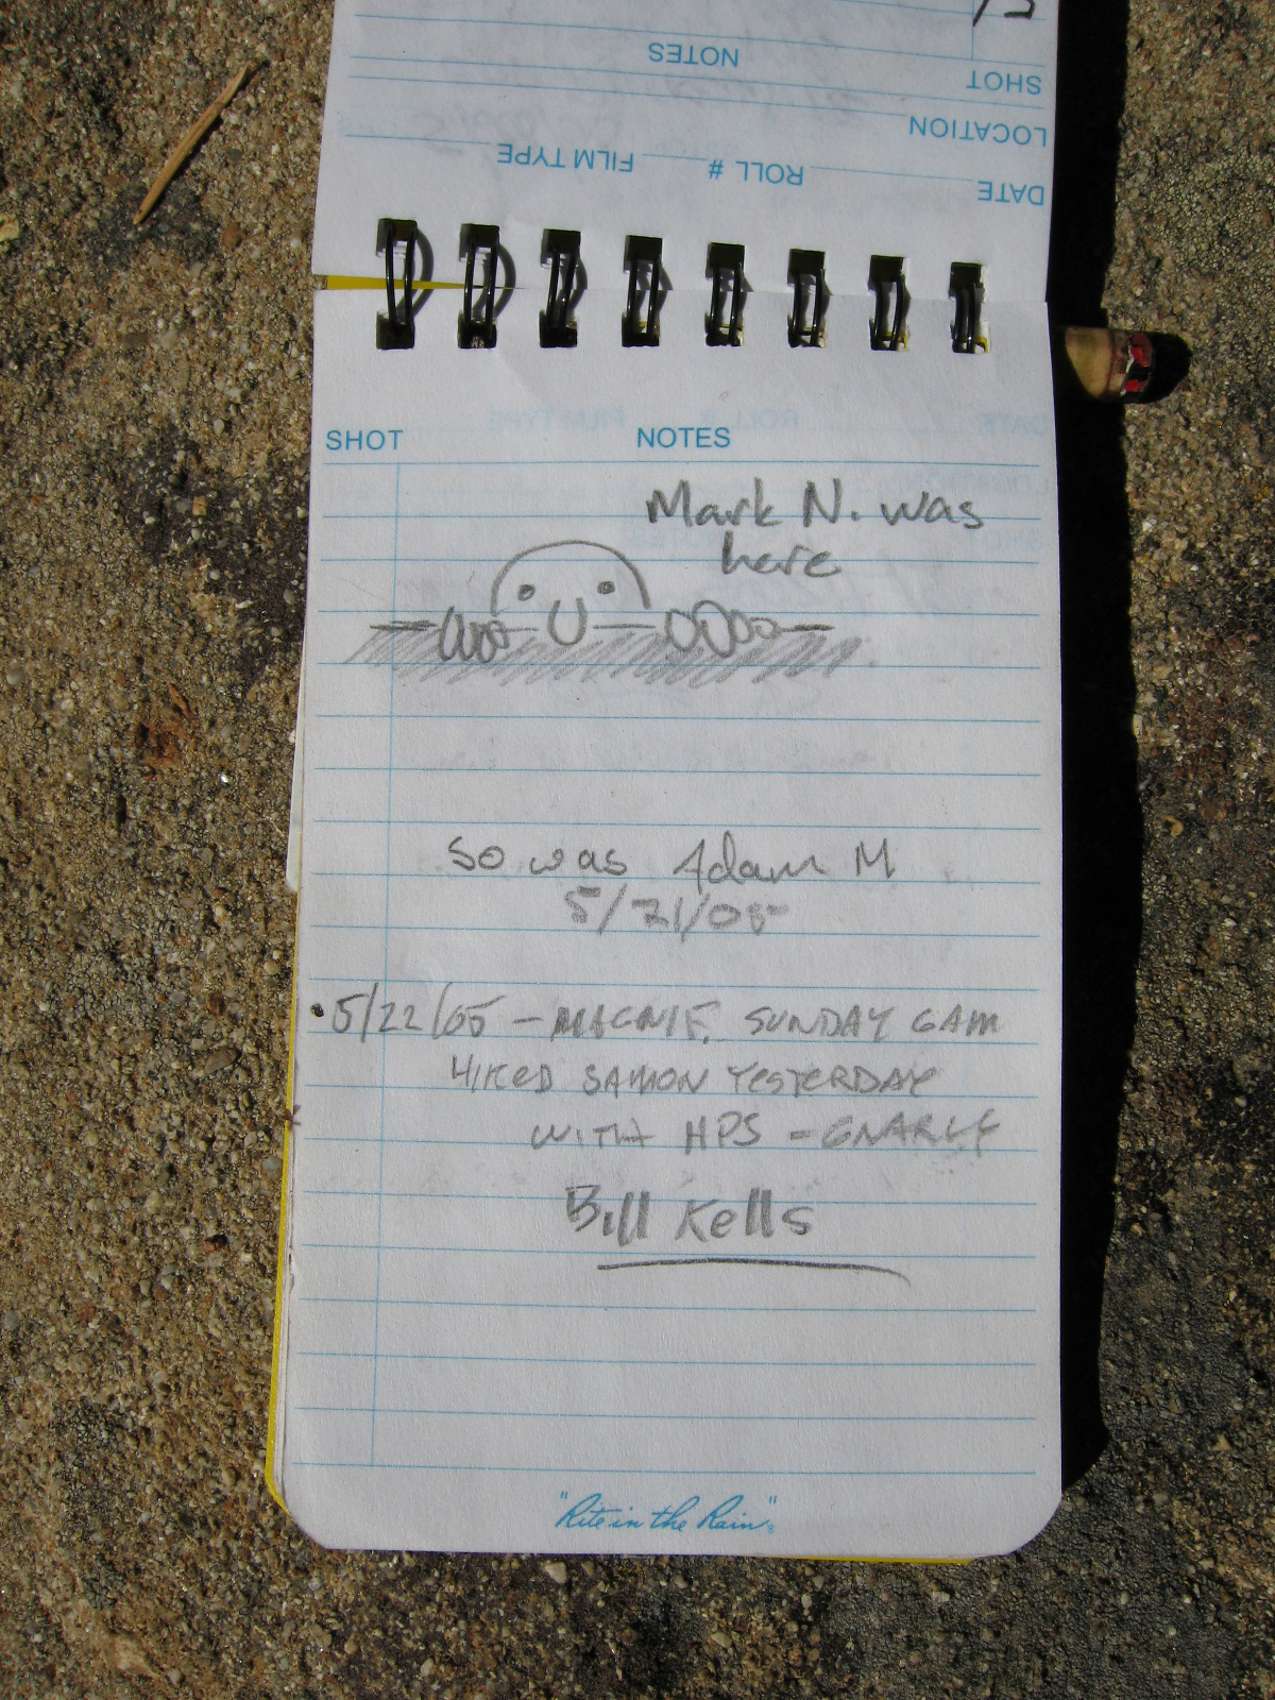 NOTES
SHOT
LOCATION
DATE ROLL # FILM TYPE
SHOT NOTES
Mark N. was
here
So was Adam M
5/21/05
5/22/05 - MAGNIF. SUNDAY 6AM
HIKED SAMON YESTERDAY
WITH HPS - GNARLY
Bill Kells
"Rite in the Rain"